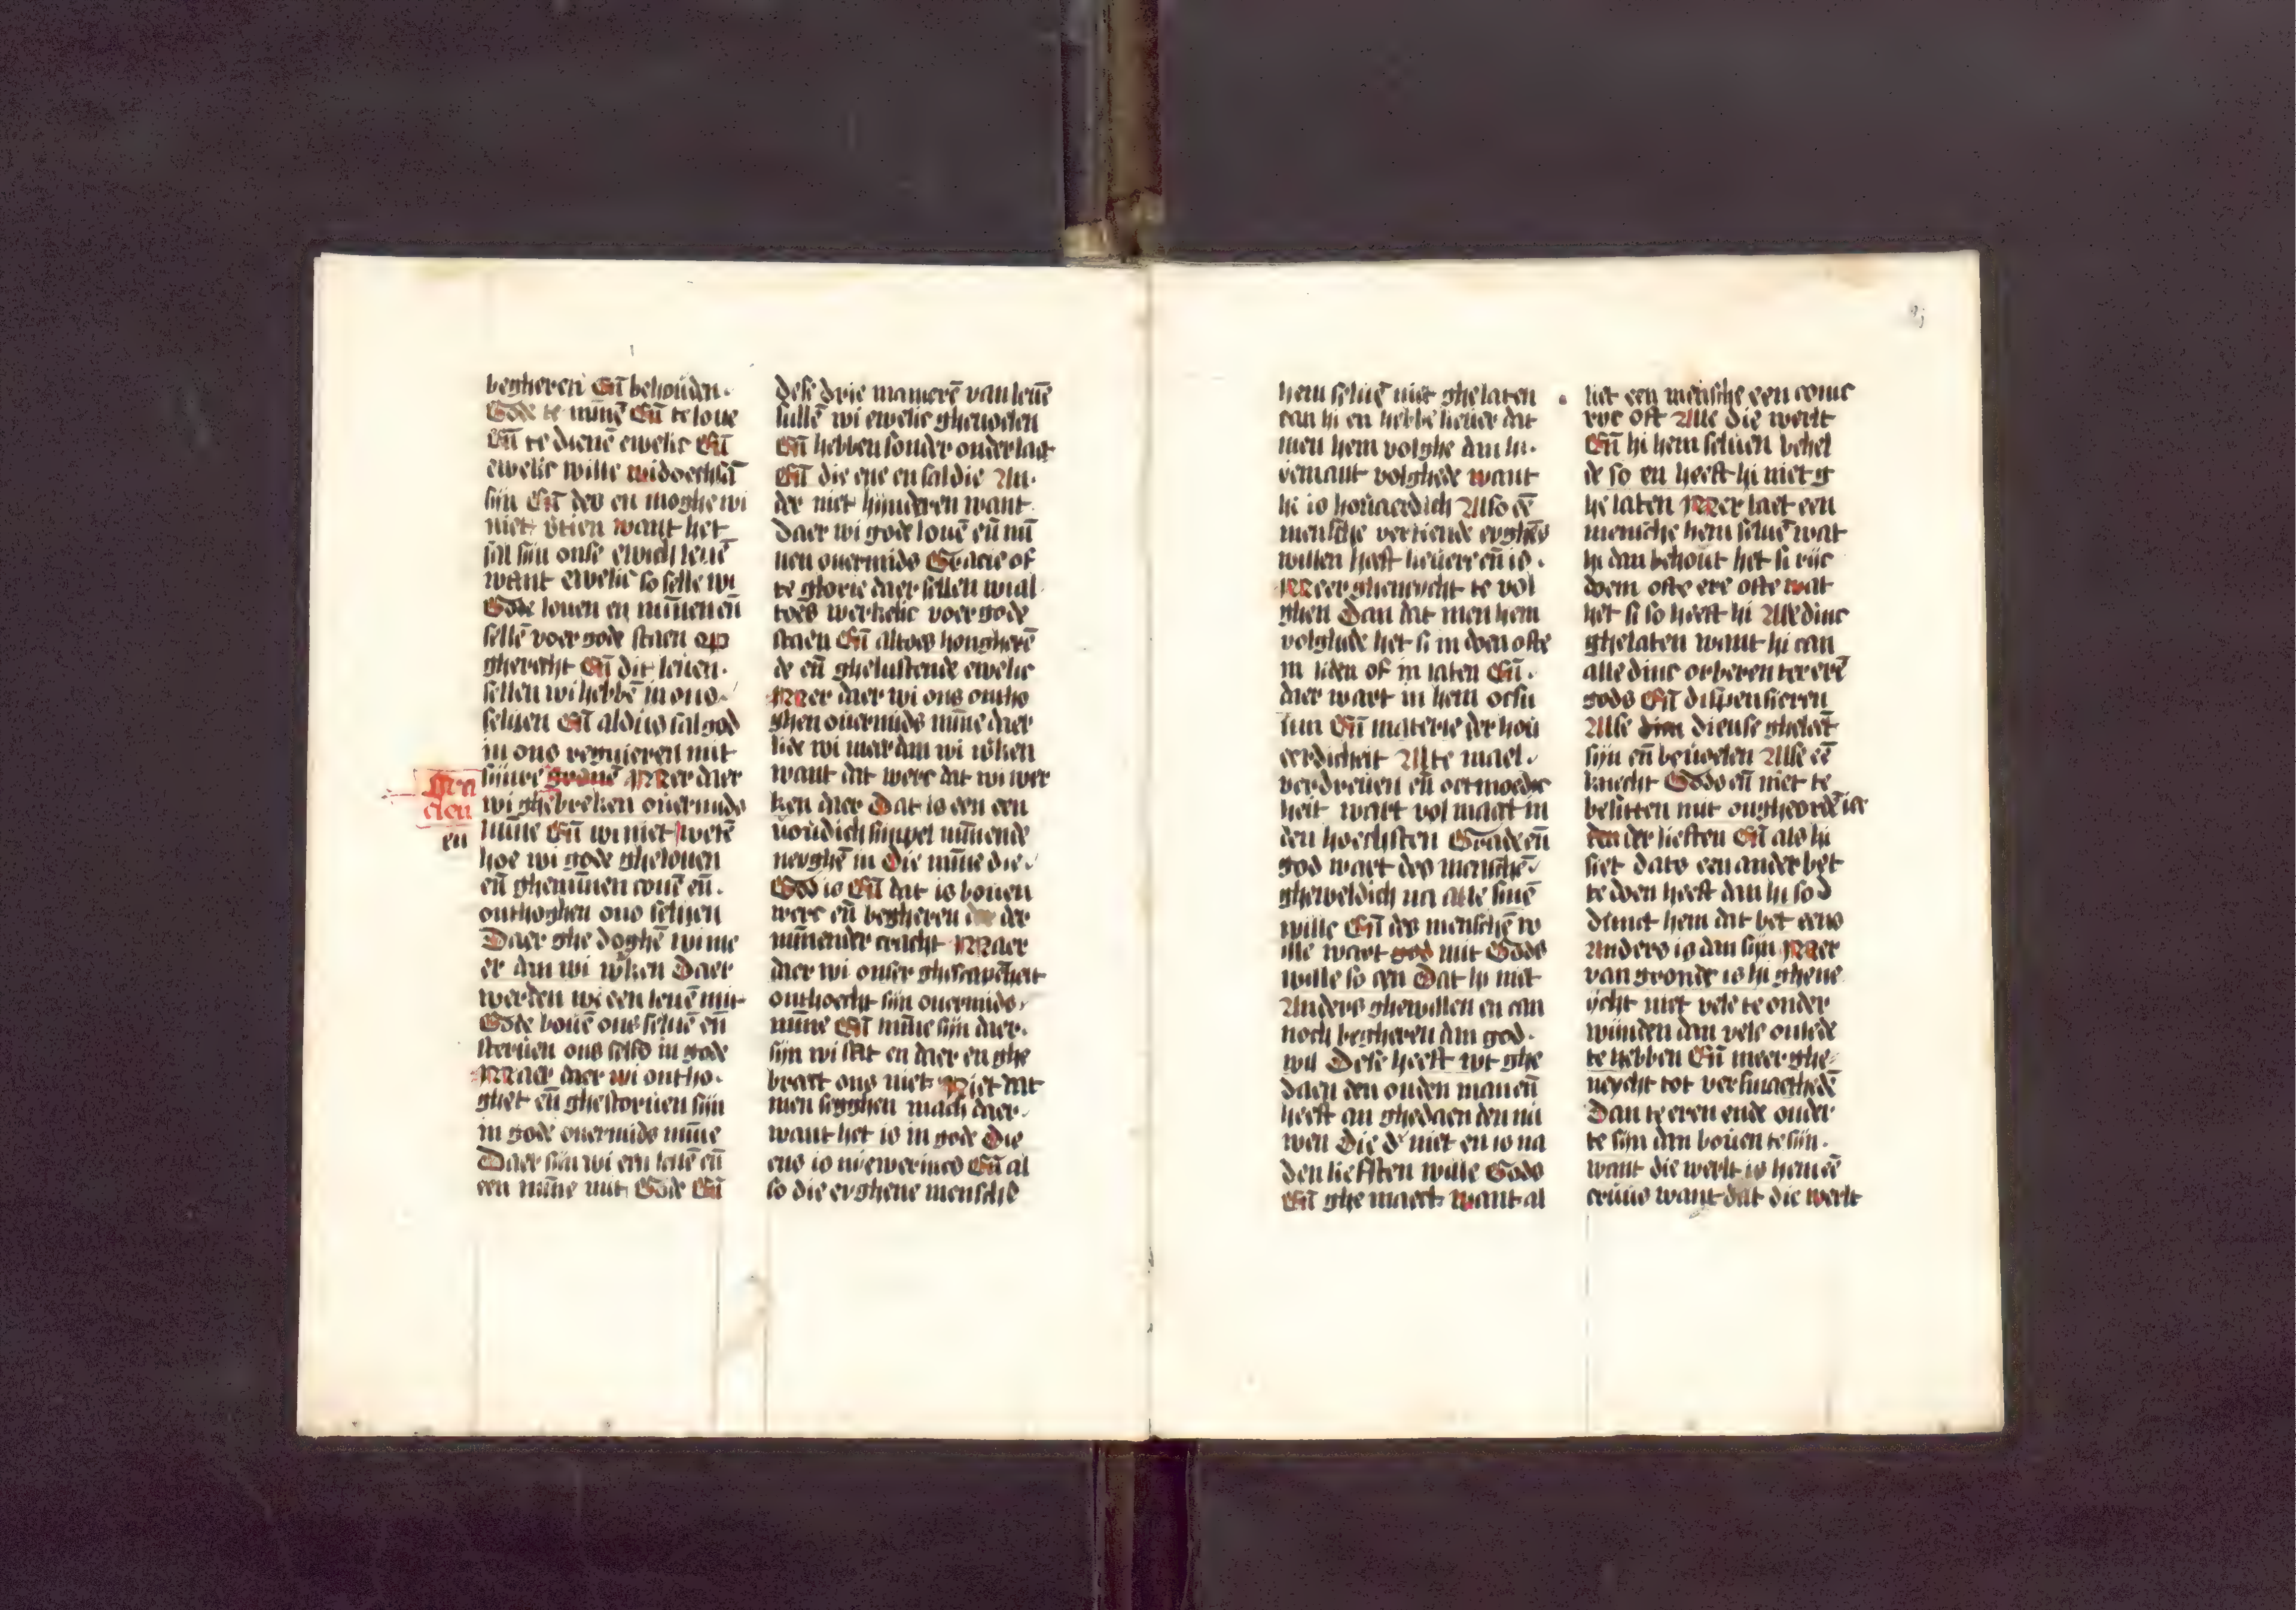 begheren Eñ behouden.
Gode te minnē Eñ te loue
Eñ te dienē ewelic Eñ
ewelic wille
sijn Eñ des en moghe wi
niet want het
sal sijn onse ewich leuē
want ewelic so selle wi
Gode louen en minnen eñ
sellē voer gode staen op
gherecht Eñ dit leuen.
sellen wi hebbē in ons
seluen Eñ aldus sal god
in ons regnieren mit
sijnre Mer daer
Gra
cien
wi ghebreken ouermids
en
minne Eñ wi niet wetē
hoe wi gode ghelouen
eñ gheminnen conē eñ.
onthoghen ons seluen
Daer ghe doghē wi me
er dan wi wken Daer
werden wi een leuē mit
Gode bouē ons seluē eñ
steruen ons selfs in gode
Maer daer wi ontho.
ghet eñ ghestoruen sijn
in gode ouermids minne
Daer sijn wi een leuē eñ
een minne mit Gode Eñ
dese drie manierē van leuē
sullē wi ewelic gheuoelen
Eñ hebben sonder onderlaet
Eñ die ene en sal die An.
der niet hinderen want
daer wi gode louē eñ mi
nen ouermids Gracie of
te glorie daer sellen wi al
toes werkelic voer gode
staen Eñ altoes hongherē
de eñ ghelustende ewelic
Mer daer wi ons ontho
ghen ouermids minne daer
lide wi meer dan wi wken
want dat werc dat wi wer
ken daer Dat is een een
uoudich simpel minnende
neyghē in die minne die
God is Eñ dat is bouen
werc eñ begheren der
minnender cracht Maer
daer wi onser ghescapēheit
onthoecht sijn ouermids
minne Eñ minne sijn daer.
sijn wi stat en daer en ghe
braect ons niet Niet dat
men segghen mach daer.
want het is in gode Die
ens is niewerincs Eñ al
so die eyghene mensche
hem seluē niet ghelaten
can hi en hebbe lieuer dat
men hem volghe dan hi.
yemant volghede want
hi is houaerdich Also eē
mensche vertiende eyghēs
willen heeft lieuer eñ is.
Meer gheneycht te vol
ghen Dan dat men hem
volghde het si in doen ofte
in liden of in laten Eñ.
daer wart in hem
Eñ materie der hou
eerdicheit Alte mael.
verdreuen eñ oetmoedic
heit wart volmaect in
den hoechsten Grade eñ
god wart des menschē
gheweldich na alle sinē
wille Eñ des menschē w
ille wart god mit Gods
wille so een Dat hi niet
Anders ghewillen en can
noch begheren dan god.
wil Dese heeft wt ghe
daen den ouden man eñ
heeft an ghedaen den ni
wen Die d' niet en is na
den liefsten wille Gods
Eñ ghe maect want al
liet een mensche een conic
ryc oft Alle die werlt
Eñ hi hem seluen behel
de so en heeft hi niet g
helaten Mer laet een
mensche hem seluē wat
hi dan behout het si ryc
doem ofte ere ofte wat
het si so heeft hi Alle dinc
ghelaten want hi can
alle dinc orberen ter erē
gods Eñ dispensieren
Alse dien diense gheleēt
sijn eñ beuoelen Alse eē
knecht Gods eñ niet te
besitten mit
der liefsten Eñ als hi
siet dats een ander bet
te doen heeft dan hi so d
dunct hem dat bet eens
Anders is dan sijn Maer
van gronde is hi ghene
ycht niet vele te onder
winden dan vele onlede
te hebben Eñ meer ghe
neycht tot versmaethedē
Dan te eren ende onder
te sijn dan bouen te sijn.
want die werlt is hem eē
cruus want dat die werlt